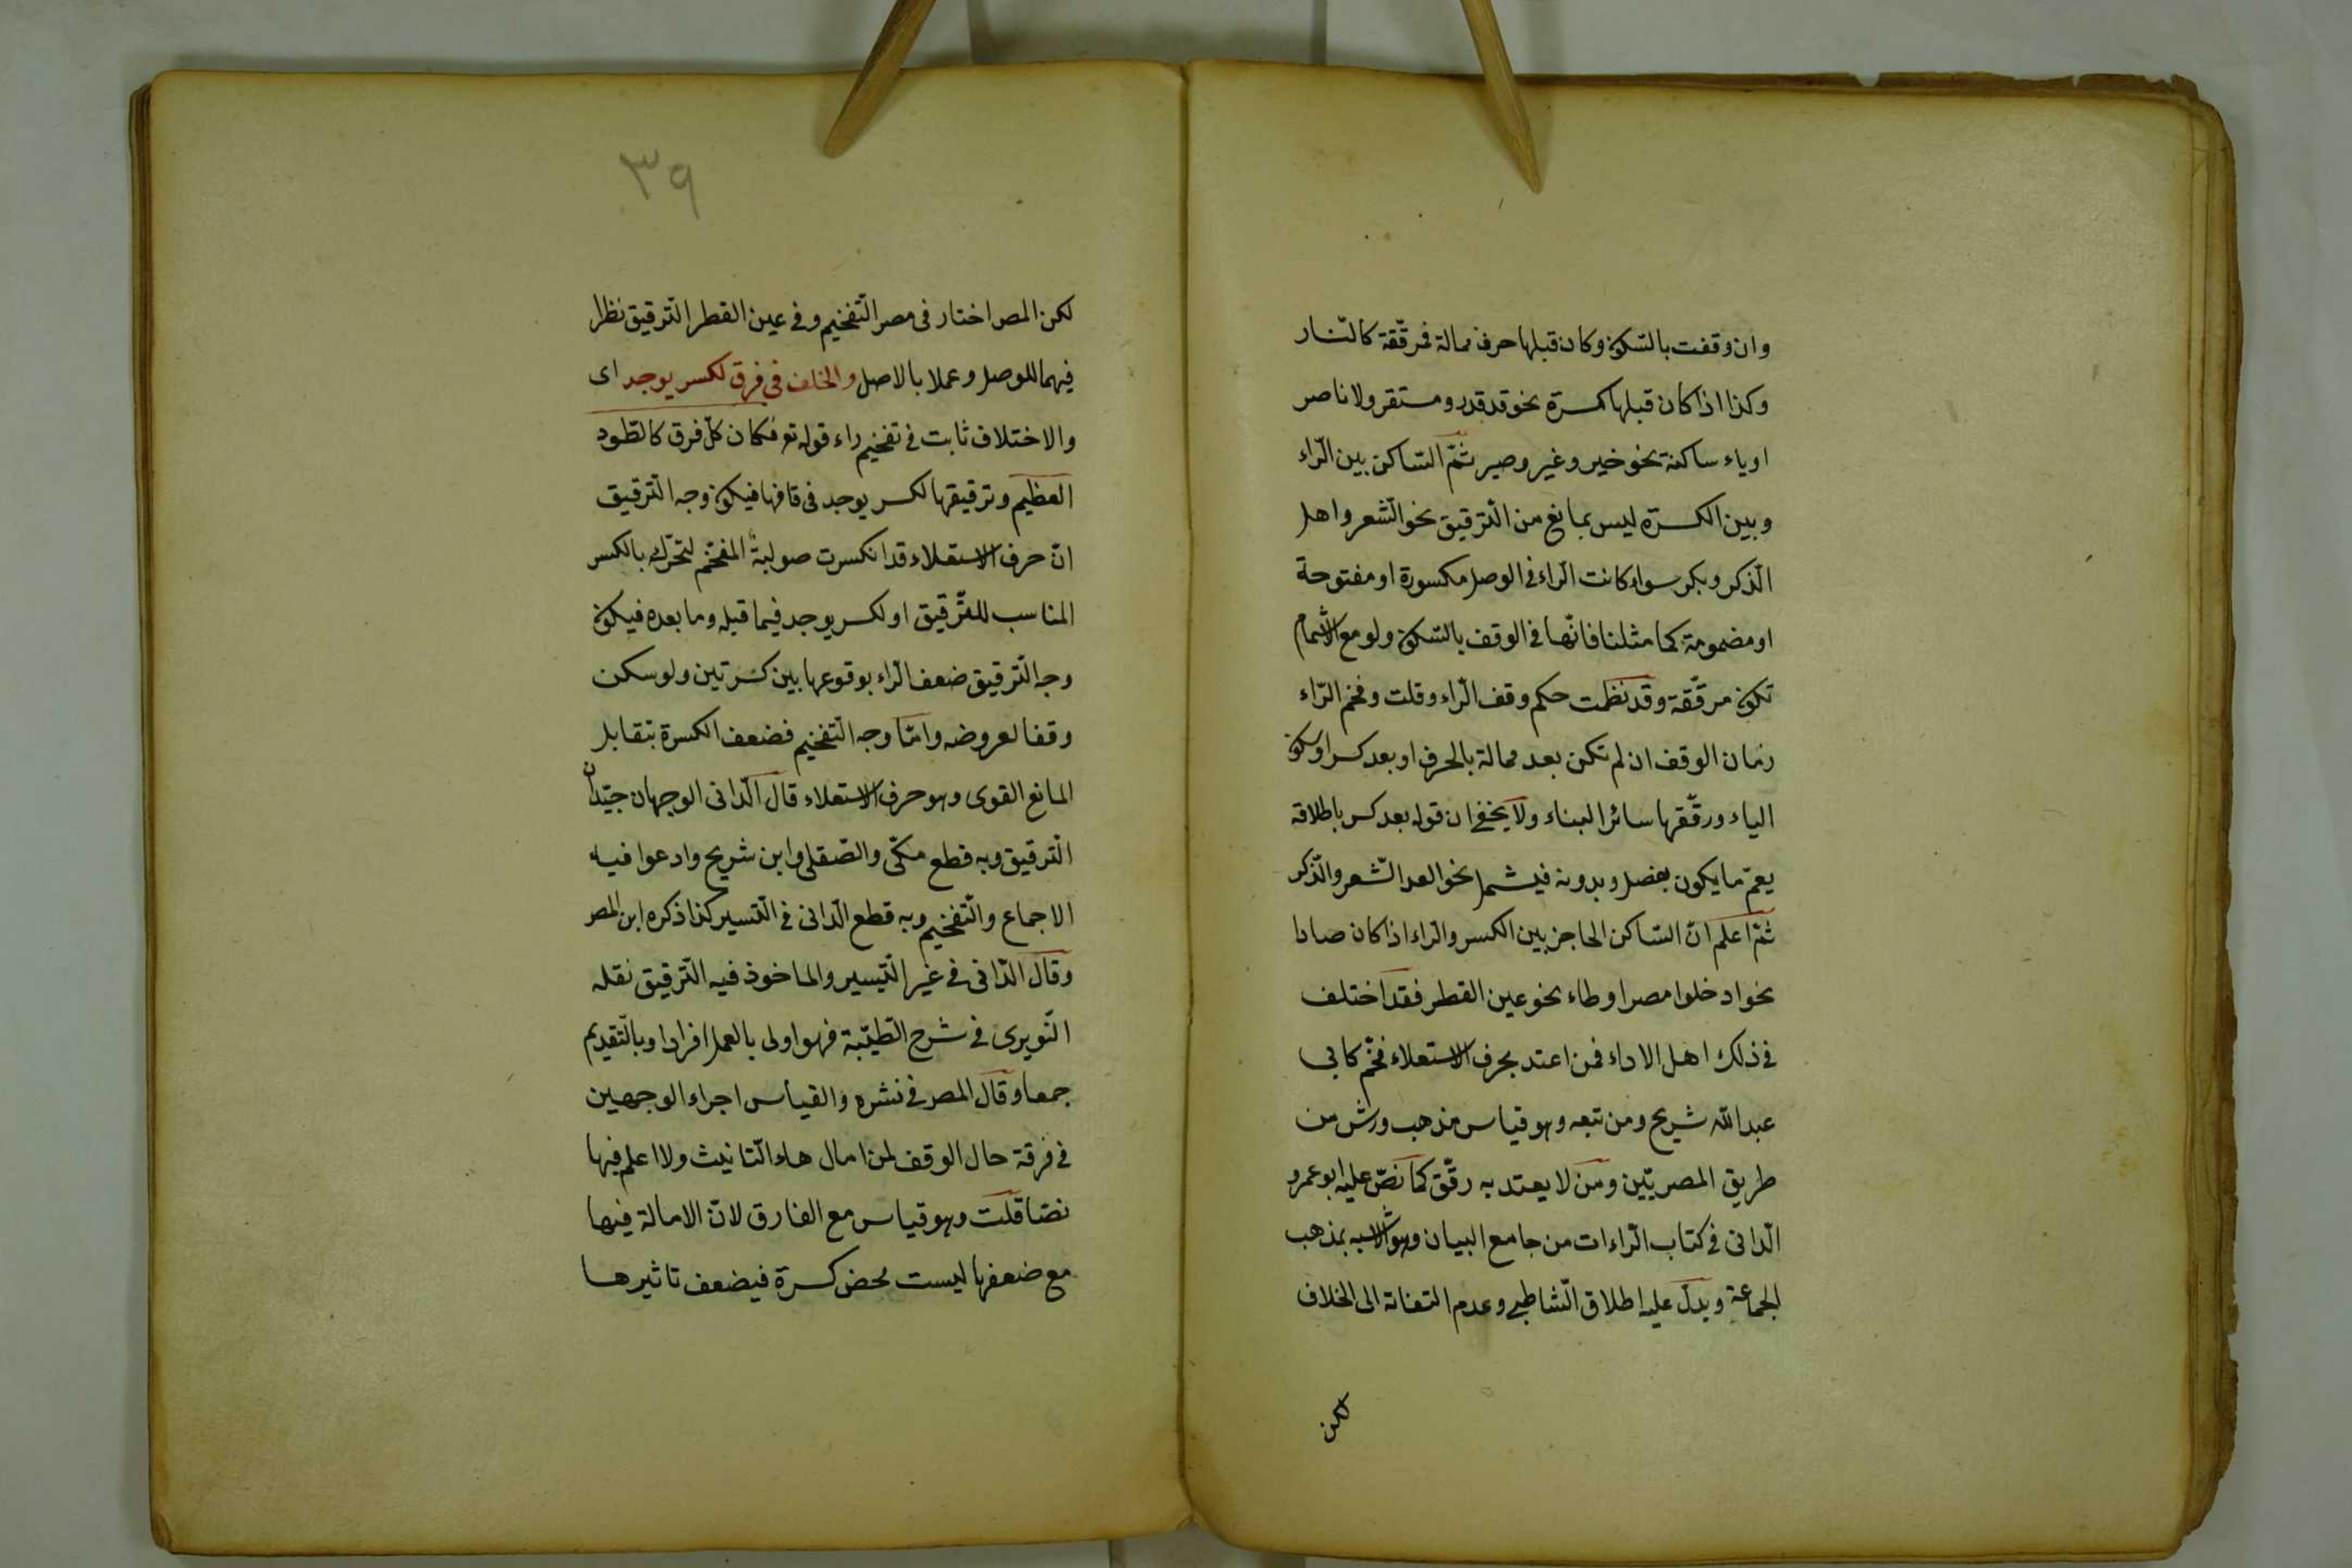 وان وقفت بالسّكون وكان قبلها حرف ممالة فمرقّقة كالنّار
وكذا اذا كان قبلها كسرة نحو قد قدر ومستقر ولا ناصر
او ياء ساكنة نحو خير وغير وصير ثمّ السّاكن بين الرّاء
وبين الكسرة ليس بمانع من الترقيق نحو الشّعر واهل
الذكر وبكر سواء كانت الراء في الوصل مكسورة او مفتوحة
او مضمومة كما مثلنا فانّها في الوقف بالسّكون ولو مع الاشمام
تكون مرقّقة وقد نظمت حكم وقف الرّاء وقلت وفخم الرّاء
زمان الوقف ان لم تكن بعد ممالة بالحرف او بعد كسر او سكون
الياء ورقّقها سائر البناء ولا يخفى ان قوله بعد كسر باطلاقه
يعمّ ما يكون بفصل وبدونه فيشمل نحو الشّعر والذّكر
ثمّ اعلم انّ السّاكن الحاجز بين الكسر والراء اذا كان صادا
نحو ادخلوا مصر او طاء نحو عين القطر فقد اختلف
في ذلك اهل الاداء فمن اعتد بحرف الاستعلاء فخّم كابي
عبد الله شريح ومن تبعه وهو قياس مذهب ورش من
طريق المصريّين ومن لا يعتد به رقّق كما نصّ عليه ابو عمرو
الدانى في كتاب الراءات من جامع البيان وهو الاشبه بمذهب
الجماعة ويدلّ عليه اطلاق الشّاطبي وعدم التفاته الى الخلاف
لكن
٣٩
لكن المص اختار فى مصر التّفخيم وفى عين القطر التّرقيق نظرا
فيهما للوصل وعملا بالاصل والخلف في فرق لكسر يوجد اى
والاختلاف ثابت في تفخيم راء قوله تع فكان كلّ فرق كالطّود
العظيم وترقيقها لكسر يوجد فى قافها فيكون وجه الترقيق
انّ حرف الاستعلاء قد انكسرت صولبة المفخّم لتحرّك بالكسر
المناسب للترّقيق او لكسر يوجد فيما قبله وما بعده فيكون
وجه التّرقيق ضعف الراء بوقوعها بين كسرتين ولو سكن
وقفا لعروضه وامّا وجه التّفخيم فضعف الكسرة بتقابل
المانع القوى وهو حرف الاستعلاء قال الدّانى الوجهان جيّدان
الترقيق وبه قطع مكّى والصّقلى وابن شريح وادعوا فيه
الاجماع والتّفخيم وبه قطع الدّانى في التيسير كذا ذكره ابن المص
وقال الدّانى في غير التّيسير والماخوذ فيه الترقيق نقله
النّويرى في شرح الطّيّبة فهو اولى بالعمل افرادا وبالتّقديم
جمعا وقال المص في نشره والقياس اجراء الوجهين
في فرقة حال الوقف لمن امال هاء التّانيث ولا اعلم فيها
نصّا قلت وهو قياس مع الفارق لانّ الامالة فيها
مع ضعفها ليست محض كسرة فيضعف تاثيرها